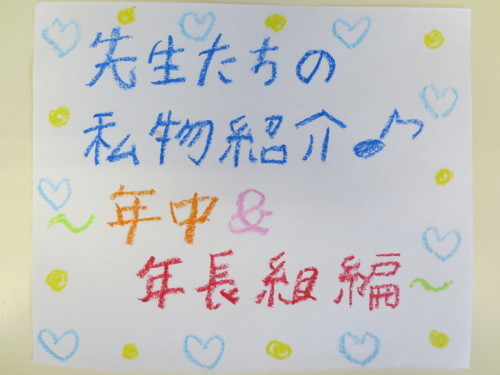 先生たちの
私物紹介♪
~年中&
年長組編~